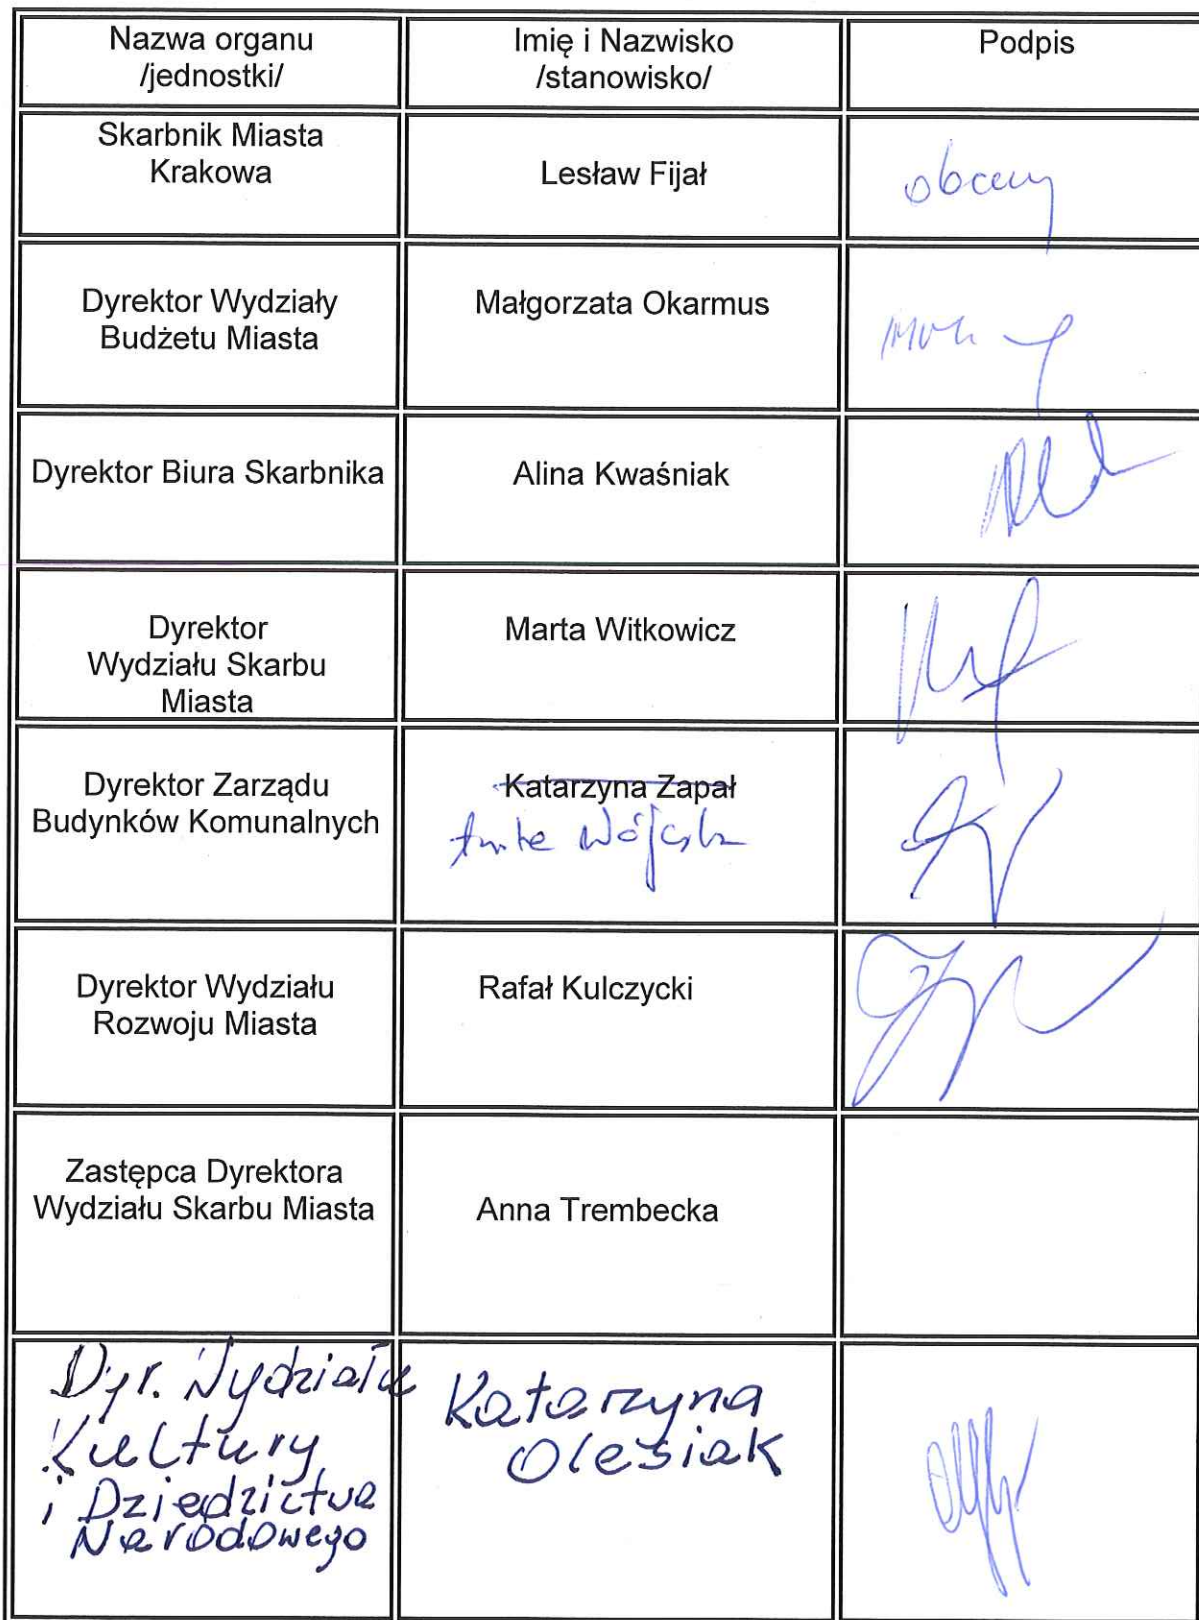 Nazwa organu
/jednostki/
Imię i Nazwisko
/stanowisko/
Podpis
Skarbnik Miasta
Krakowa
Lesław Fijał
obecny
Dyrektor Wydziały
Budżetu Miasta
Małgorzata Okarmus
Dyrektor Biura Skarbnika
Alina Kwaśniak
Dyrektor
Wydziału Skarbu
Miasta
Marta Witkowicz
Dyrektor Zarządu
Budynków Komunalnych
Katarzyna Zapał
Dyrektor Wydziału
Rozwoju Miasta
Rafał Kulczycki
Zastępca Dyrektora
Wydziału Skarbu Miasta
Anna Trembecka
Dyr. Wydziału
Kultury
i Dziedzictwa
Narodowego
Katarzyna
Olesiak